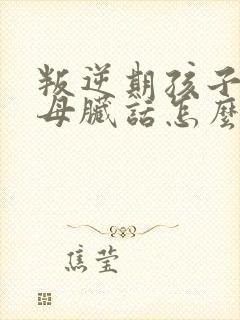 叛逆期孩子
母臟話怎麼
焦莹